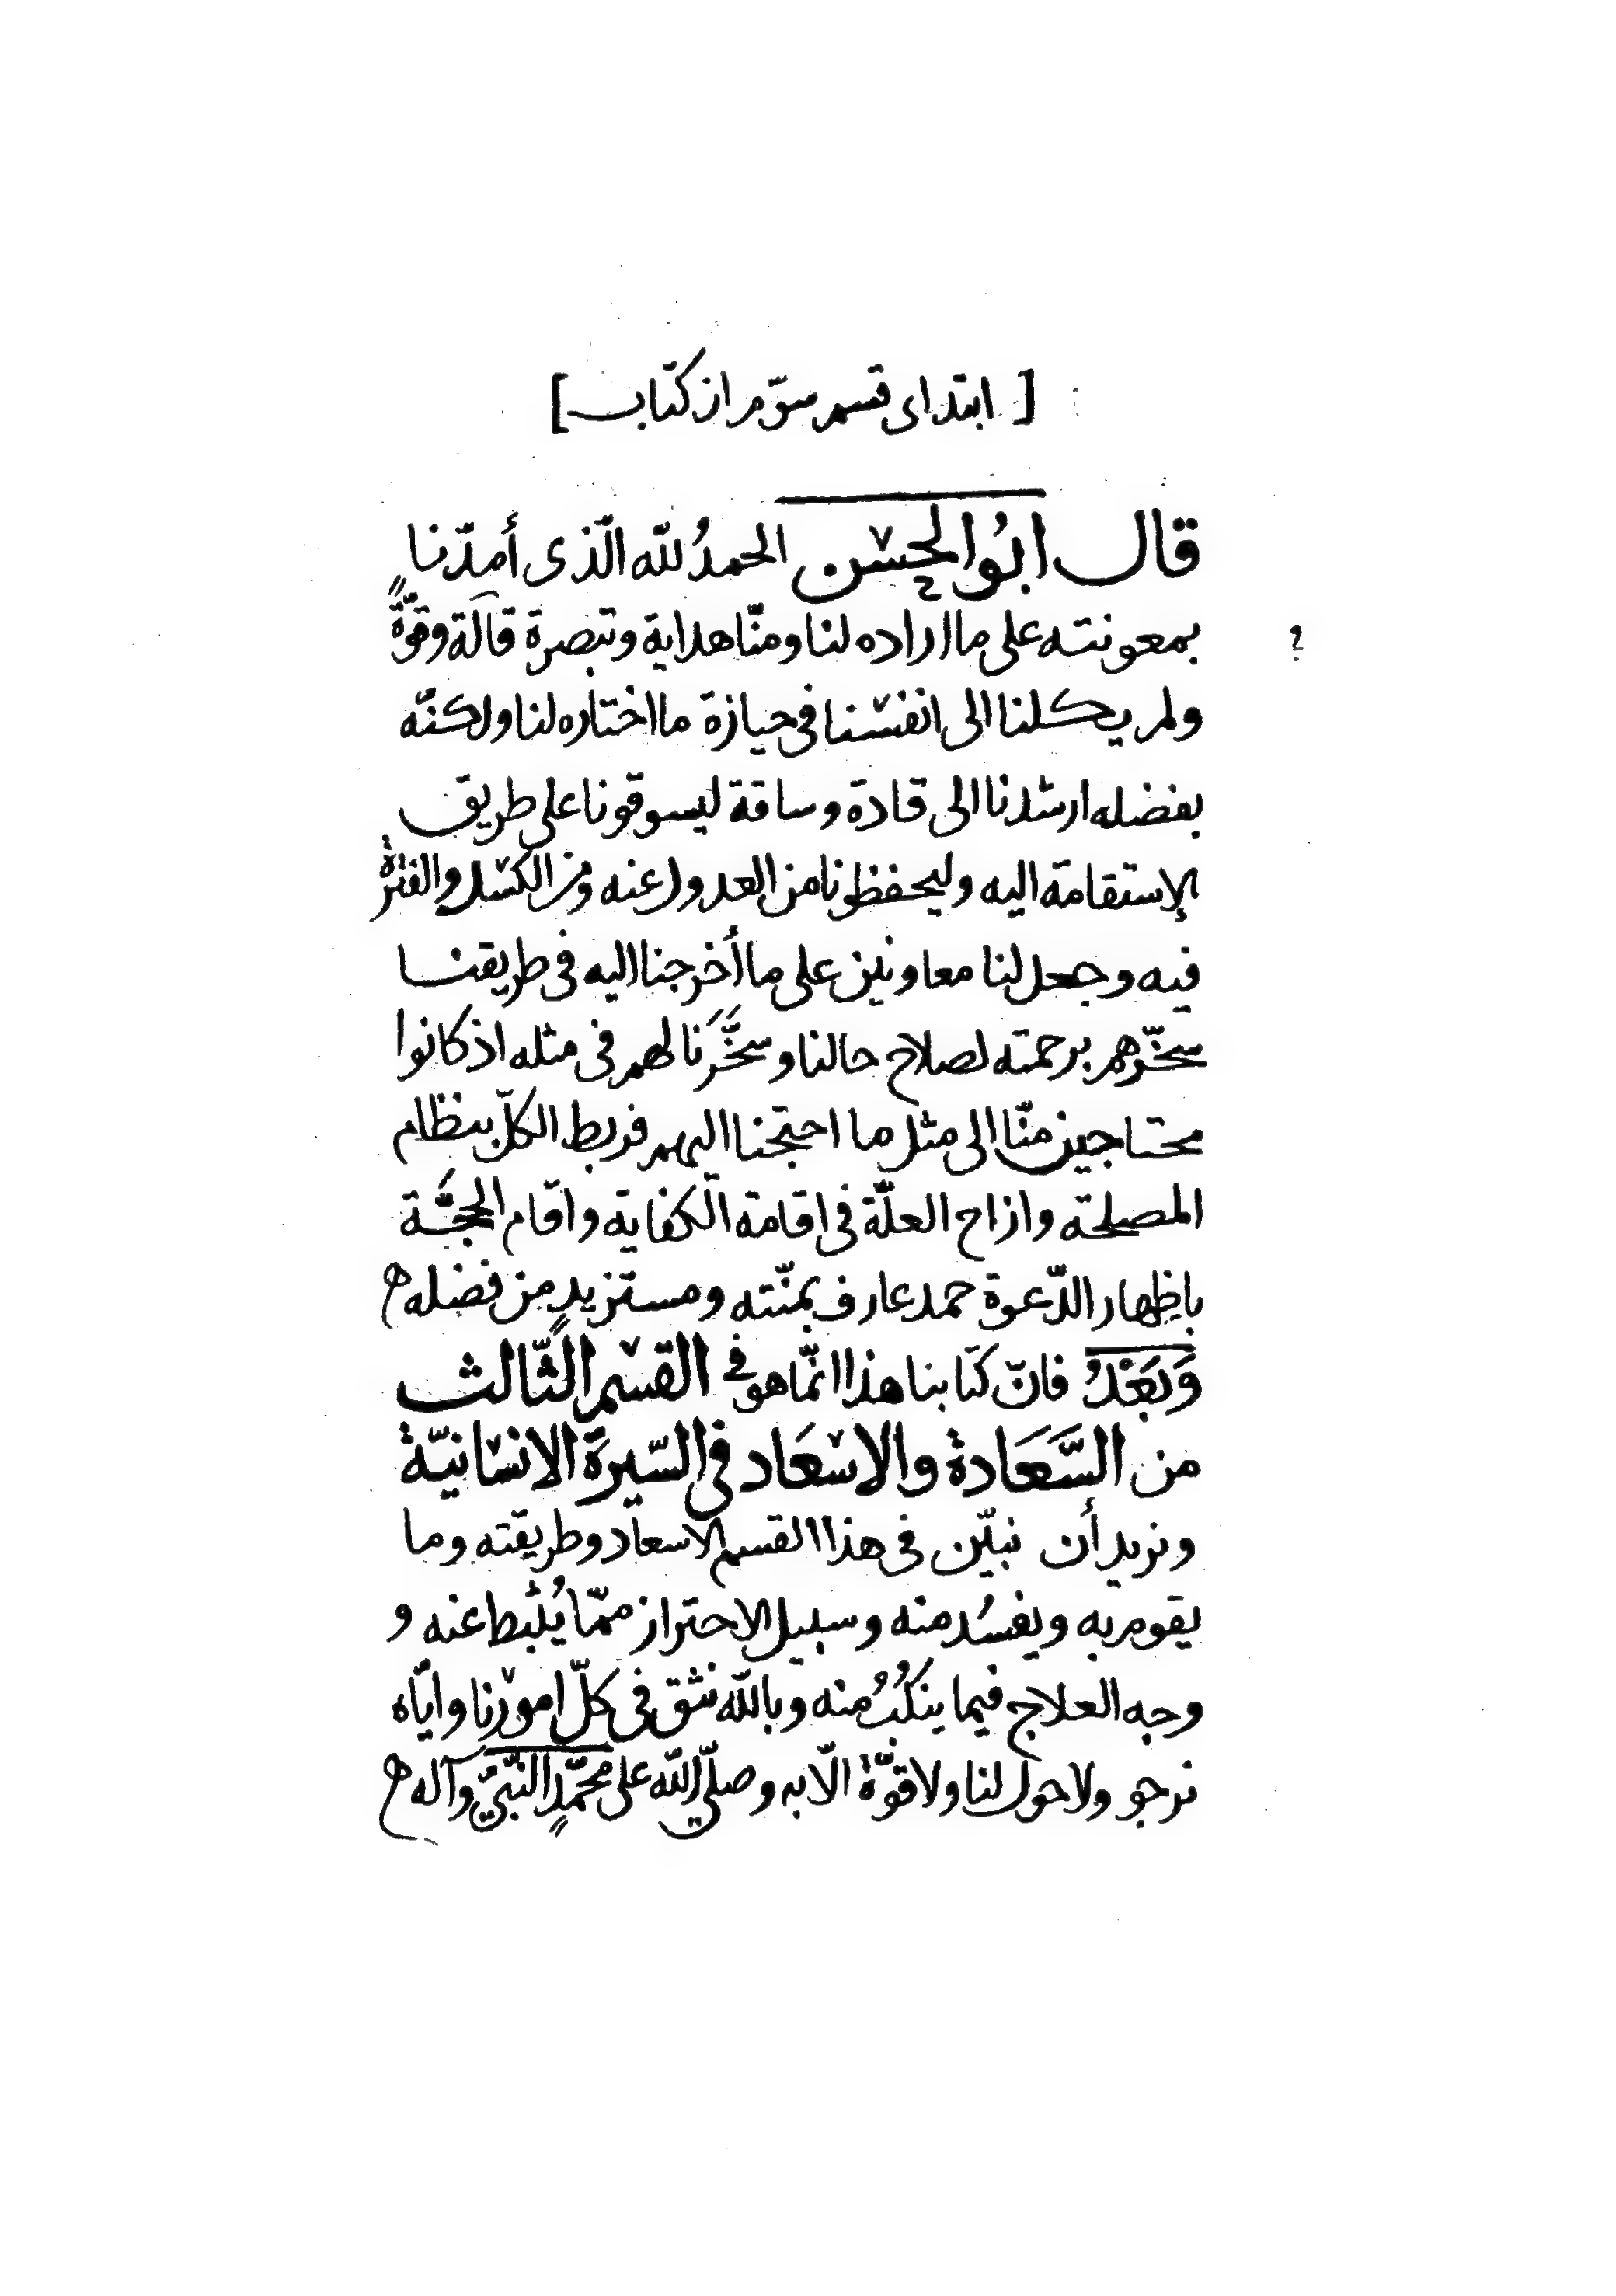 [ ابتدای قسم سوّم از کتاب ]
قال ابُوالحسن الحمدُ للّه الّذی أمدّنا
بمعونته علی ما اراده لنا ومنّا هدایة وتبصرة قالَة وقوّةً
؟
ولم یکلنا الی انفسنا فی حیازة ما اختاره لنا ولکنّه
بفضله ارشدنا الی قادة وساقة لیسوقونا علی طریق
الإستقامة الیه ولیحفظونا من العدول عنه ومن الکسل والفترة
فیه وجعل لنا معاونین علی ما أخرجنا الیه فی طریقنا
سخّرهم برحمته لصلاح حالنا وسخَّرَنَا لهم فی مثله اذ کانوا
محتاجین منّا الی مثل ما احتجنا الیهم فربط الکلّ بنظام
المصلحة وازاح العلّة فی اقامة الکفایة واقام الحجَّة
باظِهار الدّعوة حمد عارف بمنّته ومستزیدٍ من فضله ه
وَبَعْدُ فانّ کتابنا هذا انّما هو فی القسم الثّالث
من السَّعَادة والاسعَاد فی السّیرَة الانسانیّة
ونرید أن نبیّن فی هذا القسم الاسعاد وطریقته وما
یقوم به ویفسُد منه وسبیل الاحتراز ممّا یُثبط عنه و
وجه العلاج فیما ینکُبُ منه وباللّه نثق فی کلّ امورنا وایّاه
نرجو ولا حول لنا ولا قوّة الّا به وصلّی اللّه علی محمّدٍ النّبیّ وآله ه